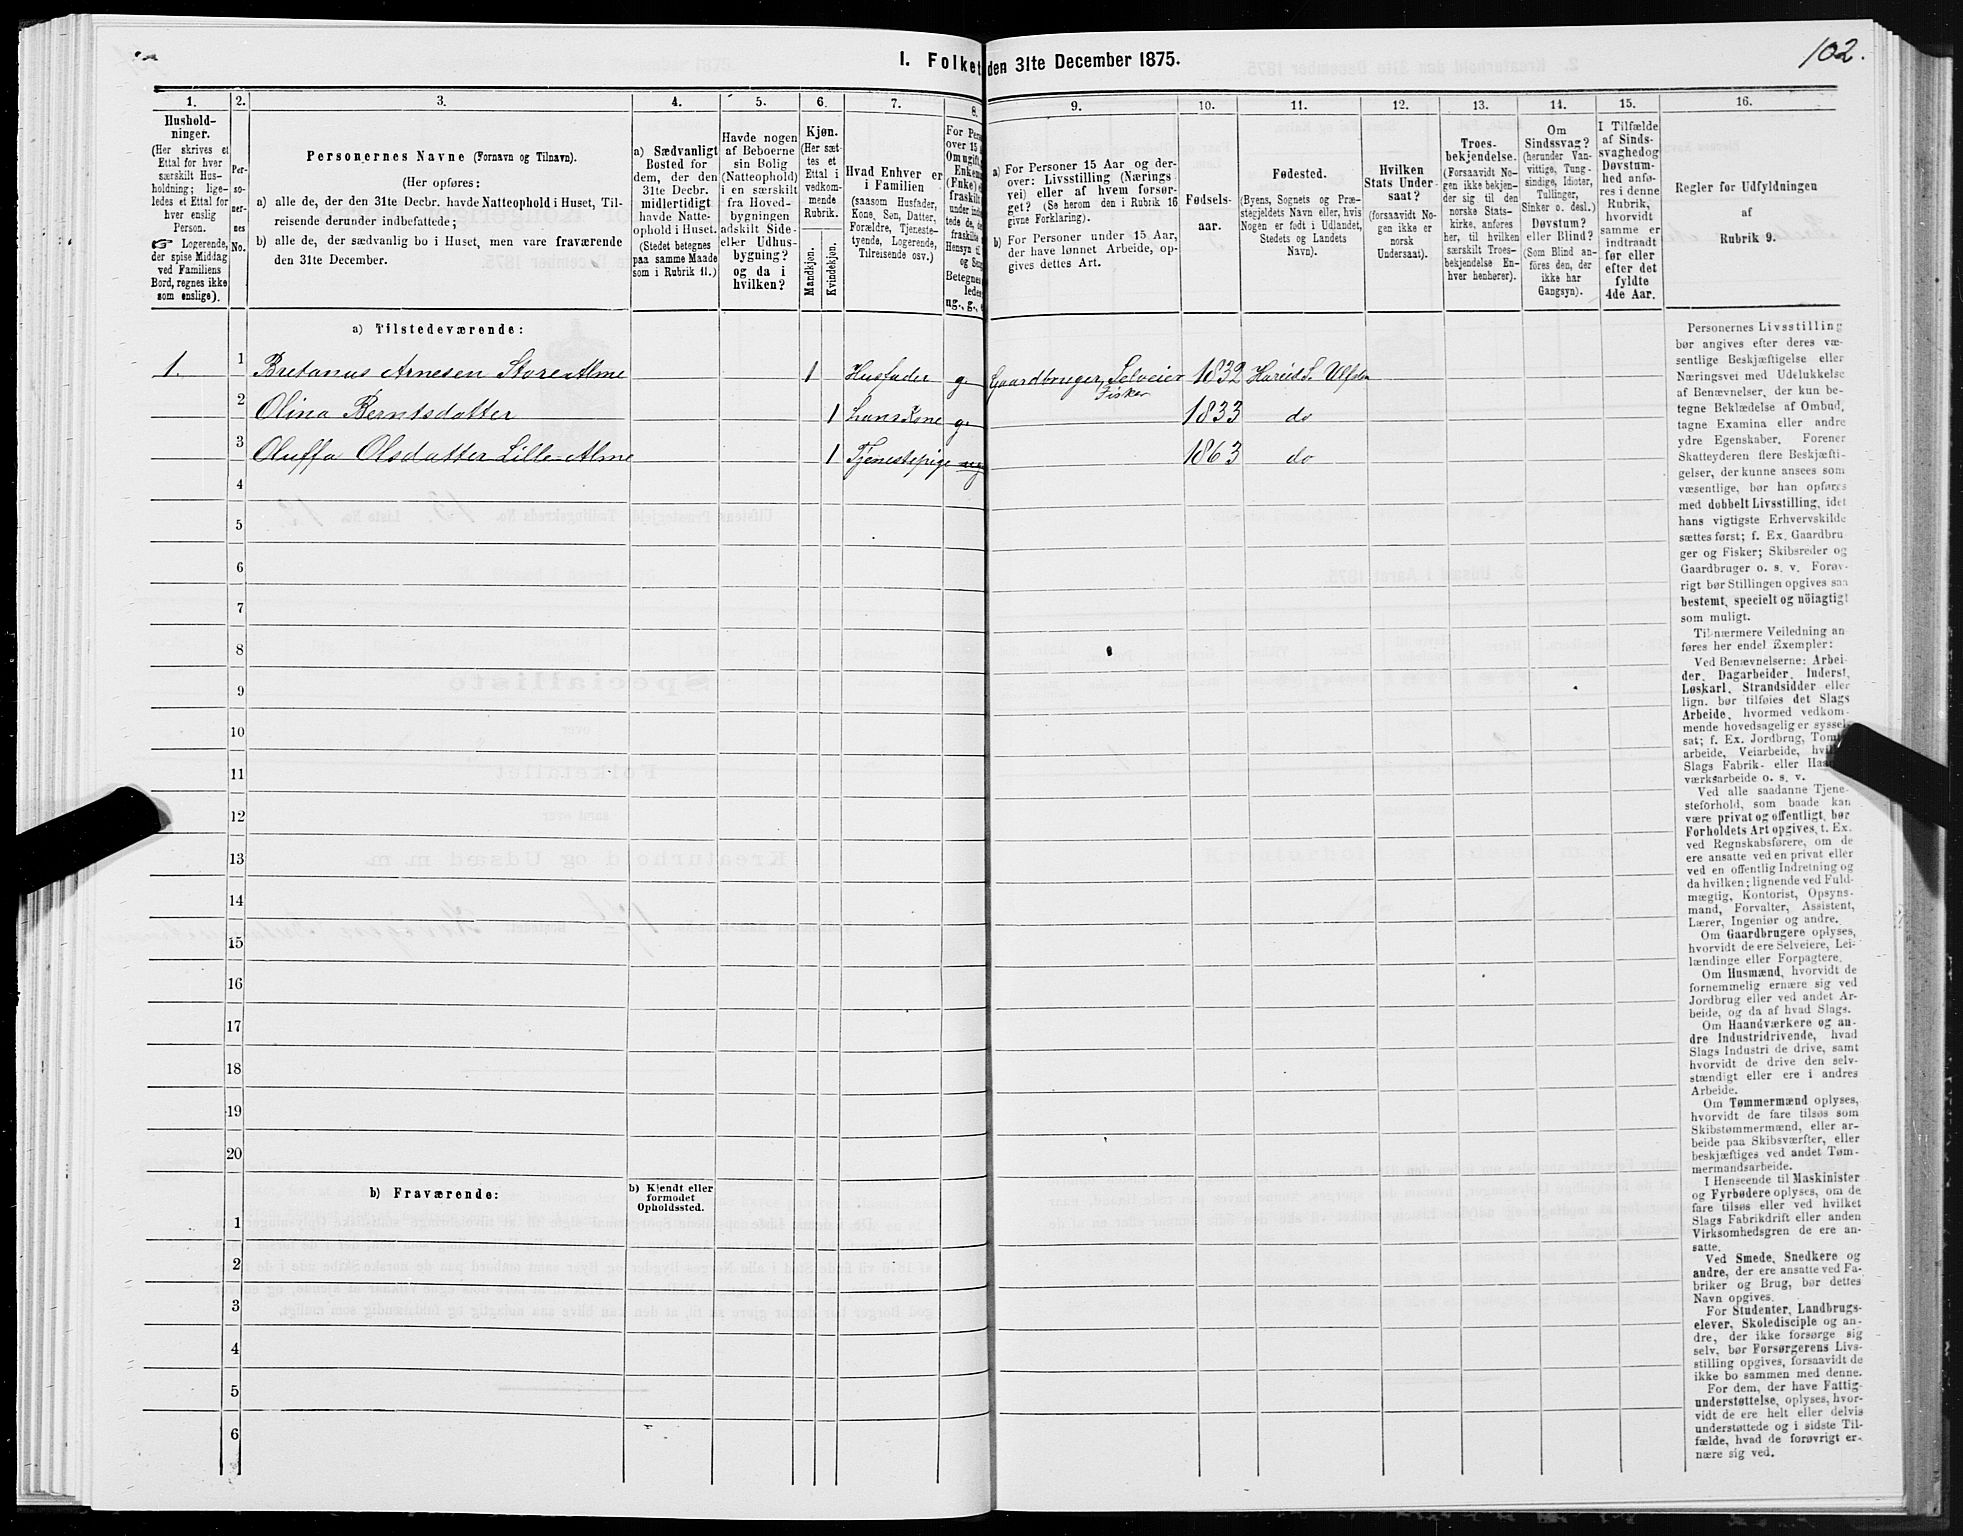 I. Folket den 31te December 1875.
102.
1. 2. 3. 4. 5. 6. 7. 8. 9. 10. 11. 12. 13. 14. 15. 16.
Hushold-
ninger.
(Her skrives et
Ettal for hver
særskilt Hus-
holdning; lige-
ledes et Ettal for
hver enslig
Person.
☞ Logerende,
der spise Middag
ved Familiens
Bord, regnes ikke
som enslige).
Per-
so-
ner-
nes
No.
Personernes Navne (Fornavn og Tilnavn).
(Her opføres:
a) alle de, der den 31te Decbr. havde Natteophold i Huset, Til-
reisende derunder indbefattede;
b) alle de, der sædvanlig bo i Huset, men vare fraværende
den 31te December.
a) Sædvanligt
Bosted for
dem, der den
31te Decbr.
midlertidigt
havde Natte-
ophold i Huset.
(Stedet betegnes
paa samme Maade
som i Rubrik 11.)
Havde nogen
af Beboerne
sin Bolig
(Natteophold)
i en særskilt
fra Hoved-
bygningen
adskilt Side-
eller Udhus-
bygning?
og da i
hvilken?
Kjøn.
(Her sæt-
tes et
Ettal i
vedkom-
mende
Rubrik.
Mandkjøn.
Kvindekjøn.
Hvad Enhver er
i Familien
(saasom Husfader,
Kone, Søn, Datter,
Forældre, Tjeneste-
tyende, Logerende,
Tilreisende osv.)
For Pers
over 15 a
Om ugift,
Enkem
(Enke) e
fraskilt
under ind
tede de, d
fraskilte
Hensyn til
og Seng
Betegnes
ledes
ug., g., e
a) For Personer 15 Aar og der-
over: Livsstilling (Nærings
vei) eller af hvem forsør-
get? (Se herom den i Rubrik 16
givne Forklaring).
b) For Personer under 15 Aar,
der have lønnet Arbeide, op-
gives dettes Art.
Fødsels-
aar.
Fødested.
(Byens, Sognets og Præ-
stegjeldets Navn eller, hvis
Nogen er født i Udlandet,
Stedets og Landets
Navn).
Hvilken
Stats Under-
saat?
(forsaavidt No-
gen ikke er
norsk
Undersaat).
Troes-
bekjendelse.
(Forsaavidt No-
gen ikke bekjen-
der sig til den
norske Stats-
kirke, anføres
her, til hvilken
særskilt Troes-
bekjendelse En-
hver henhører).
Om
Sindssvag?
(herunder Van-
vittige, Tung-
sindige, Idioter,
Tullinger,
Sinker o. desl.)
Døvstum?
eller Blind?
(Som Blind an-
føres den, der
ikke har
Gangsyn).
I Tilfælde
af Sinds-
svaghed og
Døvstum-
hed anfø-
res i denne
Rubrik,
hvorvidt
samme er
indtraadt
før eller
efter det
fyldte
4de Aar.
Regler for Udfyldningen
af
Rubrik 9.
a) Tilstedeværende:
1. 1 Bretanus Arnesen Store-Alme 1 Husfader g. Gaardbruger, Selveier 1832 Hareid S. Ulfsten
Fisker
2 Olina Berntsdatter 1 hans Kone g. 1833 do
3 Oluffa Olsdatter Lille-Alme 1 Tjenestepige ug 1863 do
4
5
6
7
8
9
10
11
12
13
14
15
16
17
18
19
20
b) Fraværende:
b) Kjendt eller
formodet
Opholdssted.
1
2
3
4
5
6
Personernes Livsstilling
bør angives efter deres væ-
sentlige Beskjæftigelse eller
Næringsvei med Udelukkelse
af Benævnelser, der kun be-
tegne Beklædelse af Ombud,
tagne Examina eller andre
ydre Egenskaber. Forener
Skatteyderen flere Beskjæfti-
gelser, der kunne ansees som
væsentlige, bør han opføres
med dobbelt Livsstilling, idet
hans vigtigste Erhvervskilde
sættes først; f. Ex. Gaardbru
ger og Fisker; Skibsreder og
Gaardbruger o. s. v. Forøv-
rigt bør Stillingen opgives saa
bestemt, specielt og nöiagtigt
som muligt.
Til nærmere Veiledning an
føres her endel Exempler:
Ved Benævnelserne: Arbei-
der, Dagarbeider, Inderst,
Løskarl, Strandsidder eller
lign. bør tilføies det Slags
Arbeide, hvormed vedkom-
mende hovedsagelig er syssel-
sat; f. Ex. Jordbrug, Tomt
arbeide, Veiarbeide, hvil
Slags Fabrik- eller Haa
værksarbeide o. s. v.
Ved alle saadanne Tjene-
steforhold, som baade kan
være privat og offentligt, bør
Forholdets Art opgives, t. Ex.
ved Regnskabsførere, om de
ere ansatte ved en privat eller
ved en offentlig Indretning og
da hvilken; lignende ved Fuld-
mægtig, Kontorist, Opsyns-
mand, Forvalter, Assistent,
Lærer, Ingeniør og andre.
Om Gaardbrugere oplyses,
hvorvidt de ere Selveiere, Lei-
lændinge eller Forpagtere.
Om Husmænd, hvorvidt de
fornemmelig ernære sig ved
Jordbrug eller ved andet Ar-
beide, og da af hvad Slags.
Om Haandværkere og an-
dre Industridrivende, hvad
Slags Industri de drive, samt
hvorvidt de drive den selv-
stændigt eller ere i andres
Arbeide.
Om Tømmermænd oplyses,
hvorvidt de fare tilsøs som
Skibstømmermænd, eller ar-
beide paa Skibsværfter, eller
beskjæftiges ved andet Tøm-
mermandsarbeide.
I Henseende til Maskinister
og Fyrbødere oplyses, om de
fare tilsøs eller ved hvilket
Slags Fabrikdrift eller anden
Virksomhedsgren de ere an-
satte.
Ved Smede, Snedkere og
andre, der ere ansatte ved Fa-
briker og Brug, bør dettes
Navn opgives.
For Studenter, Landbrugs-
elever, Skoledisciple og an-
dre, der ikke forsørge sig
selv, bør Forsørgerens Livs-
stilling opgives, forsaavidt de
ikke bo sammen med denne.
For dem, der have Fattig-
understøttelse, oplyses, hvor-
vidt de ere helt eller delvis
understøttede og i sidste Til-
fælde, hvad de forøvrigt er-
nære sig ved.